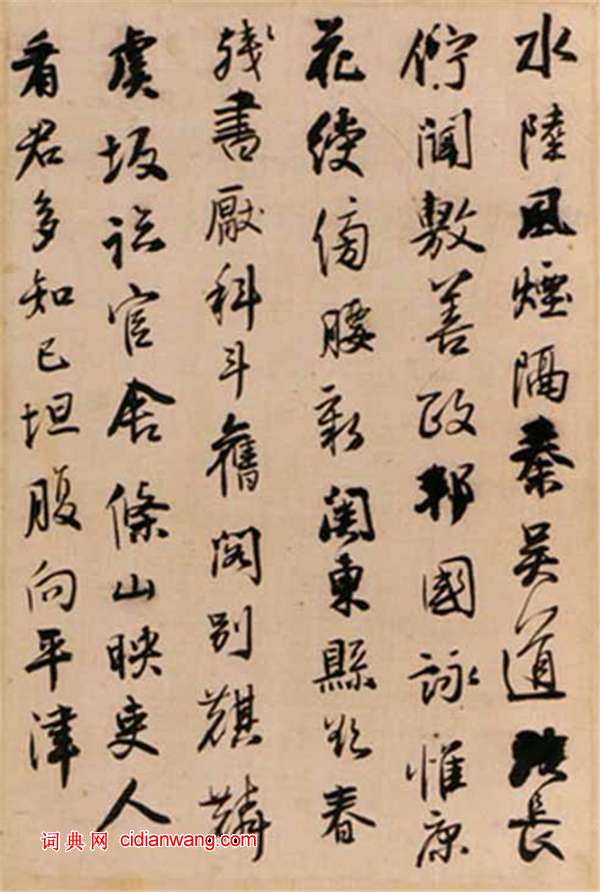 水陸風煙隔秦吳道路長
佇聞敷善政邦國詠惟康
花綬傍腰新關東縣欲春
殘書厭科斗舊閣別麒麟
虞坂臨官舍條山映吏人
看君多知己坦腹向平津
词典网 cidianwang.com